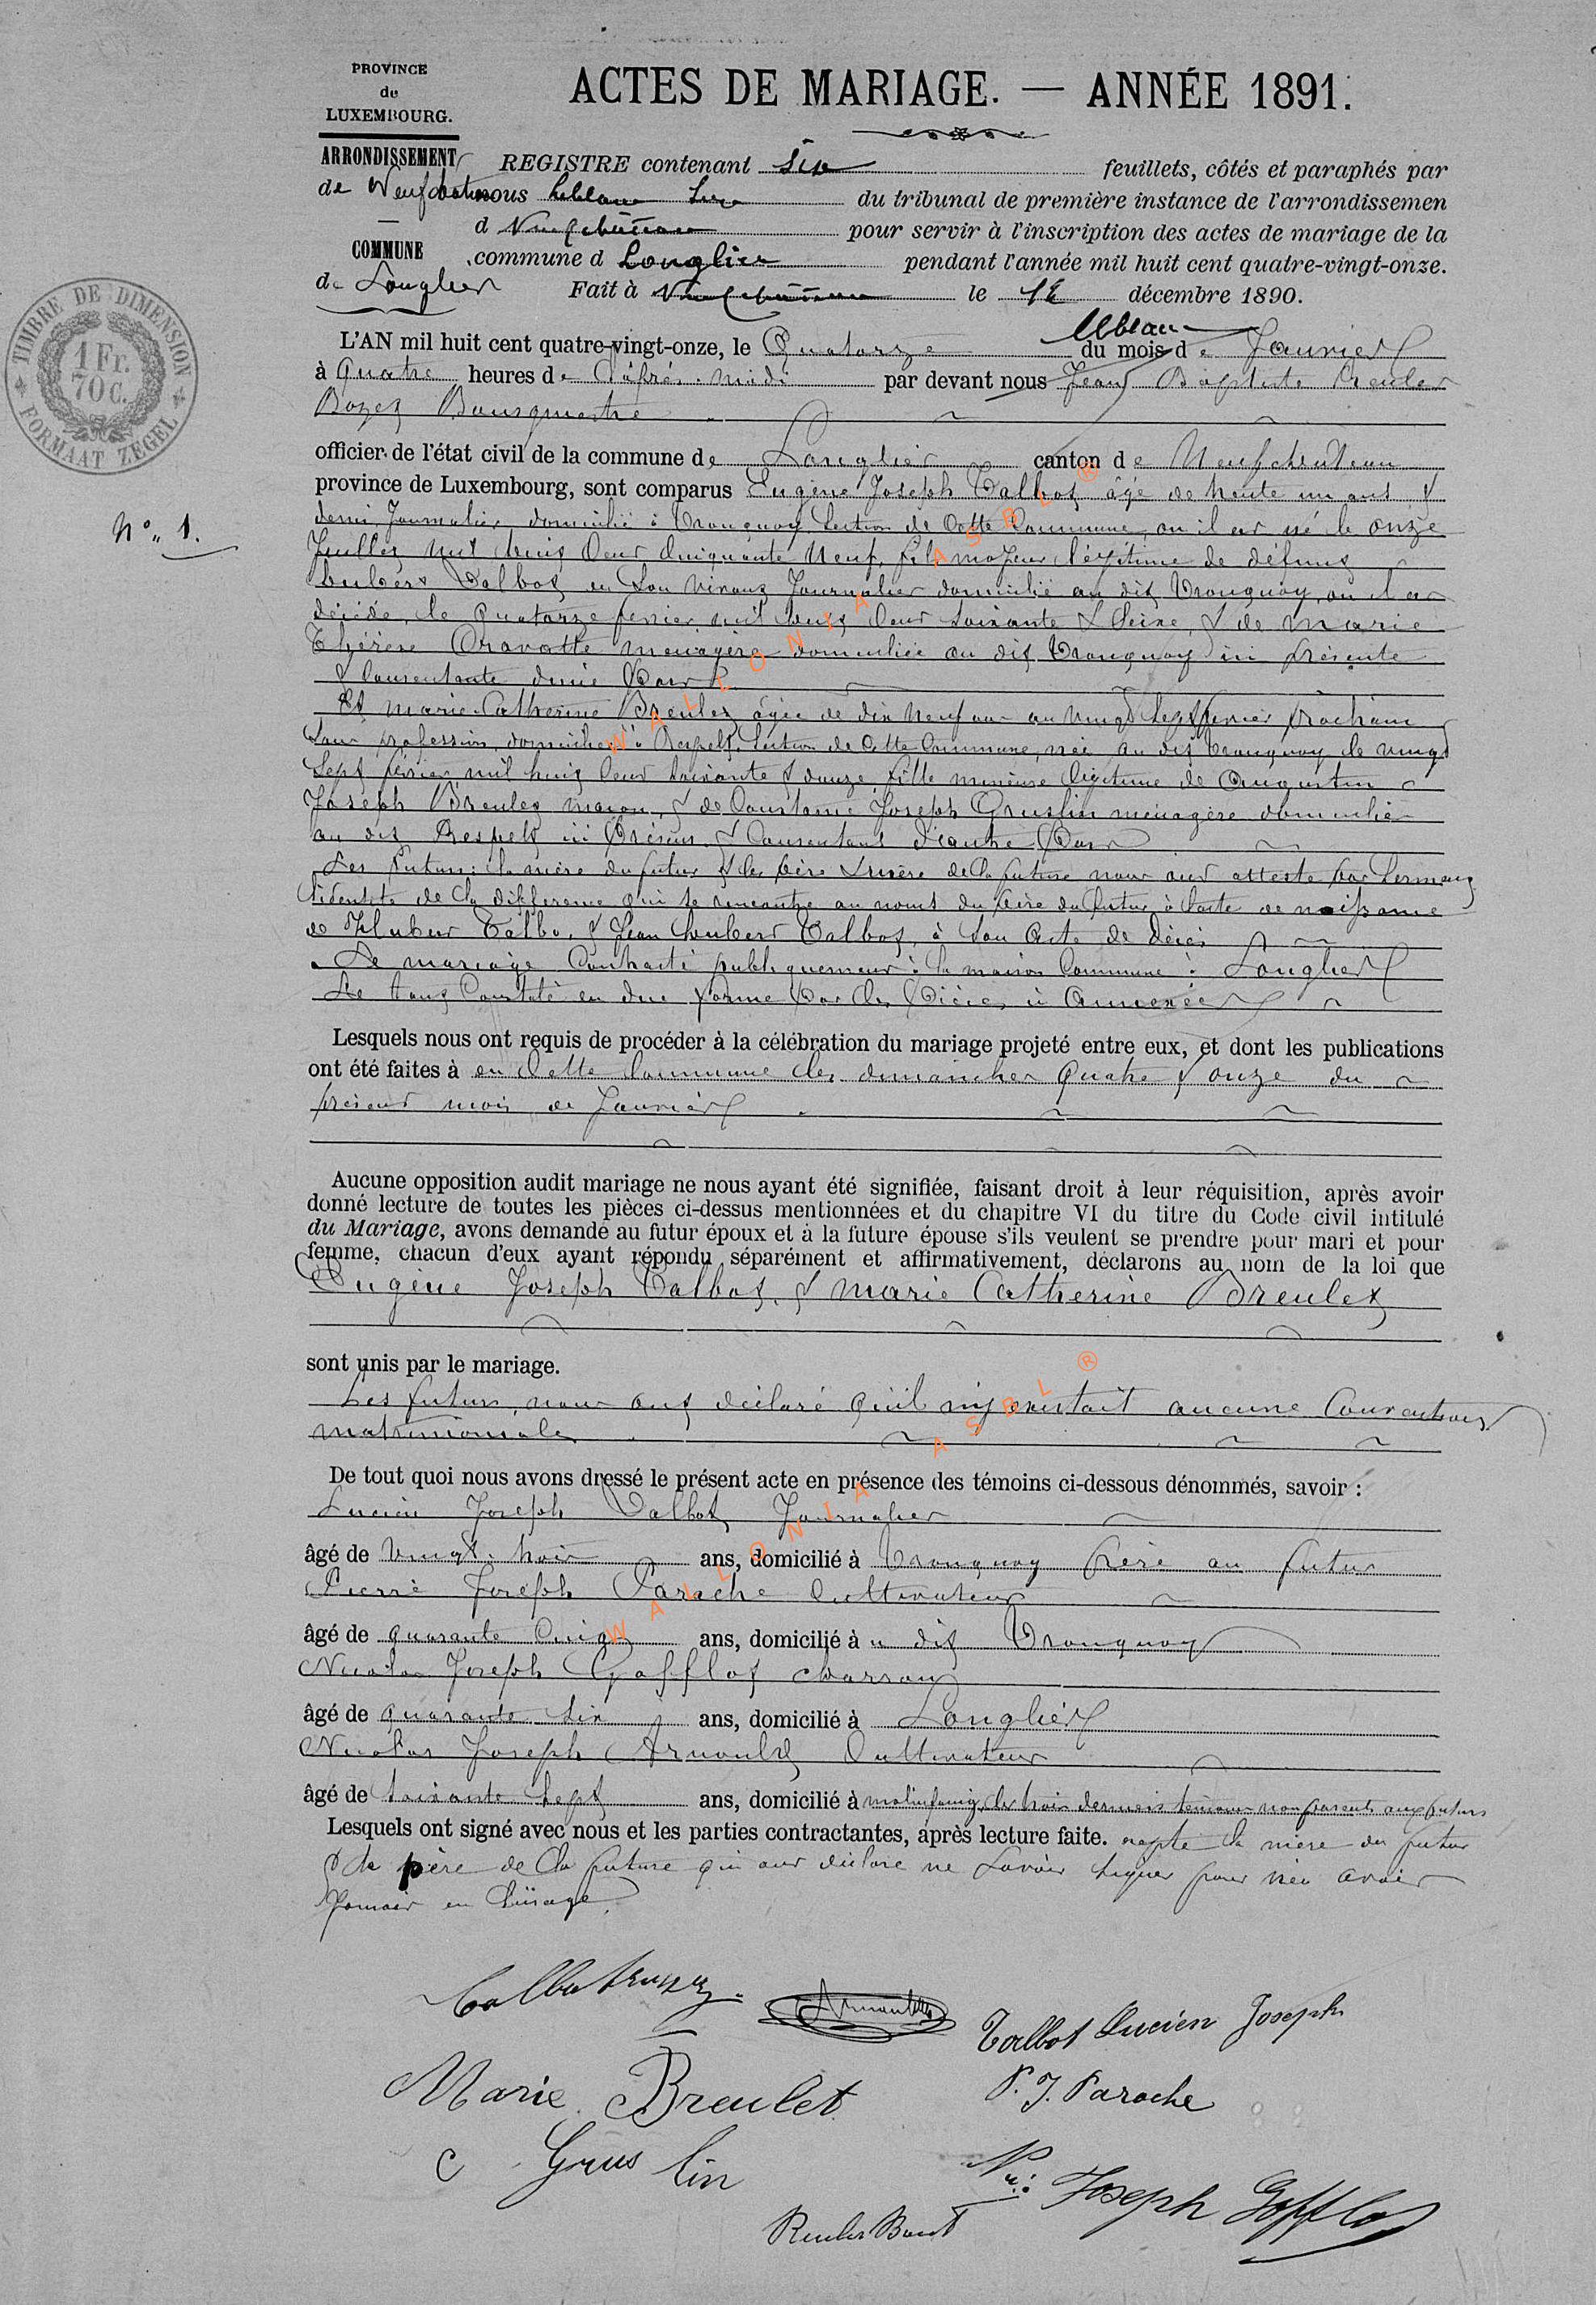 PROVINCE
de
LUXEMBOURG.
ARRONDISSEMENT
de Neufchateau
COMMUNE
de Longlier
TIMBRE DE DIMENSION
1 Fr.
70 C.
FORMAAT ZEGEL
ACTES DE MARIAGE. — ANNÉE 1891.
REGISTRE contenant six feuillets, côtés et paraphés par
nous Leblanc du tribunal de première instance de l'arrondissemen
d Neufchâteau pour servir à l'inscription des actes de mariage de la
commune d Longlier pendant l'année mil huit cent quatre-vingt-onze.
Fait à Neufchâteau le décembre 1890.
Leblanc
N° 1.
L'AN mil huit cent quatre-vingt-onze, le Quatorze du mois de Janvier
à Quatre heures de l'après-midi par devant nous Jean Baptiste Reuler
Bozet Bourgmestre
officier de l'état civil de la commune de Longlier canton de Neufchateau
province de Luxembourg, sont comparus Eugène Joseph Talbot âgé de trente un ans &
demi, Journalier, domicilié à Tronquoy Section de Cette Commune, où il est né le onze
Juillet mil huit Cent Cinquante Neuf, fils majeur légitime de défunt
hubert Talbot en Son vivant Journalier domicilié au dit Tronquoy, où il est
décédé, le Quatorze fevrier mil huit Cent Soixante & Seize, & de Marie
Thérèse Cravatte ménagère domiciliée au dit Tronquoy ici présente
& Consentante d'une Part
Et Marie Catherine Breulet âgée de dix Neuf ans au vingt Sept fevrier prochain
Sans profession, domiciliée à Respelt, Section de Cette Commune, née au dit Tronquoy le vingt
Sept février mil huit Cent Soixante & douze, fille mineure légitime de Augustin
Joseph Breulet maçon, & de Constance Joseph Gruslin ménagère domiciliés
au dit Respelt ici Présens & Consentans d'autre Part
Les Futurs, la mère du futur & les père & mère de la future nous ont attesté par Serment
l'identité de la différence qui se rencontre au noms du père du futur à l'acte de naissance
de Hubert Talbo, & Jean hubert Talbot, à Son Acte de décès
Le mariage Contracté publiquement à la maison Commune à Longlier
Le tout Constaté en due forme Par les Pièces ci Annexées
Lesquels nous ont requis de procéder à la célébration du mariage projeté entre eux, et dont les publications
ont été faites à en Cette Commune les dimanches Quatre & onze du
présent mois de Janvier
Aucune opposition audit mariage ne nous ayant été signifiée, faisant droit à leur réquisition, après avoir
donné lecture de toutes les pièces ci-dessus mentionnées et du chapitre VI du titre du Code civil intitulé
du Mariage, avons demandé au futur époux et à la future épouse s'ils veulent se prendre pour mari et pour
femme, chacun d'eux ayant répondu séparément et affirmativement, déclarons au nom de la loi que
Eugène Joseph Talbot, & Marie Catherine Breulet
sont unis par le mariage.
Les futurs nous ont déclaré qu'il n'y existait aucune Conventions
matrimoniale
De tout quoi nous avons dressé le présent acte en présence des témoins ci-dessous dénommés, savoir :
Lucien Joseph Talbot Journalier
âgé de Vingt-trois ans, domicilié à Tronquoy frère au futur
Pierre Joseph Paroche Cultivateur
âgé de quarante Cinq ans, domicilié à u dit Tronquoy
Nicolas Joseph Gofflot charron
âgé de quarante Six ans, domicilié à Longlier
Nicolas Joseph Arnould Cultivateur
âgé de Soixante Sept ans, domicilié à molinfaing, les trois derniers témoins non parents aux futurs
Lesquels ont signé avec nous et les parties contractantes, après lecture faite. excepté la mère du futur
& le père de la future qui ont déclaré ne Savoir Signer pour n'en avoir
Jamais eu l'usage
Talbot
Arnould
Talbot Lucien Joseph
Marie Breulet
P. J. Paroche
C Gruslin
Joseph Gofflot
WALLONIA ASBL ®
WALLONIA ASBL ®